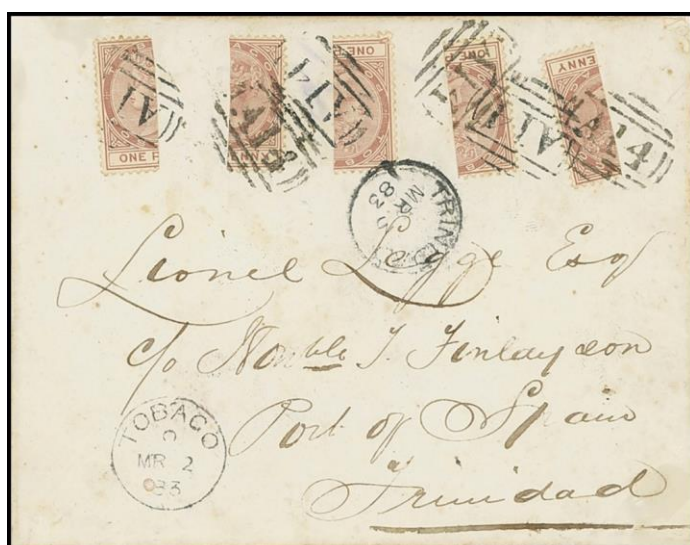 ONE P
ENNY
ONE
ONE
ENNY
A14
A14
A14
TRINIDAD
MR
83
Lionel Lygge Esq
c/o Honble J. Finlayson
Port of Spain
Trinidad
TOBAGO
MR 2
83